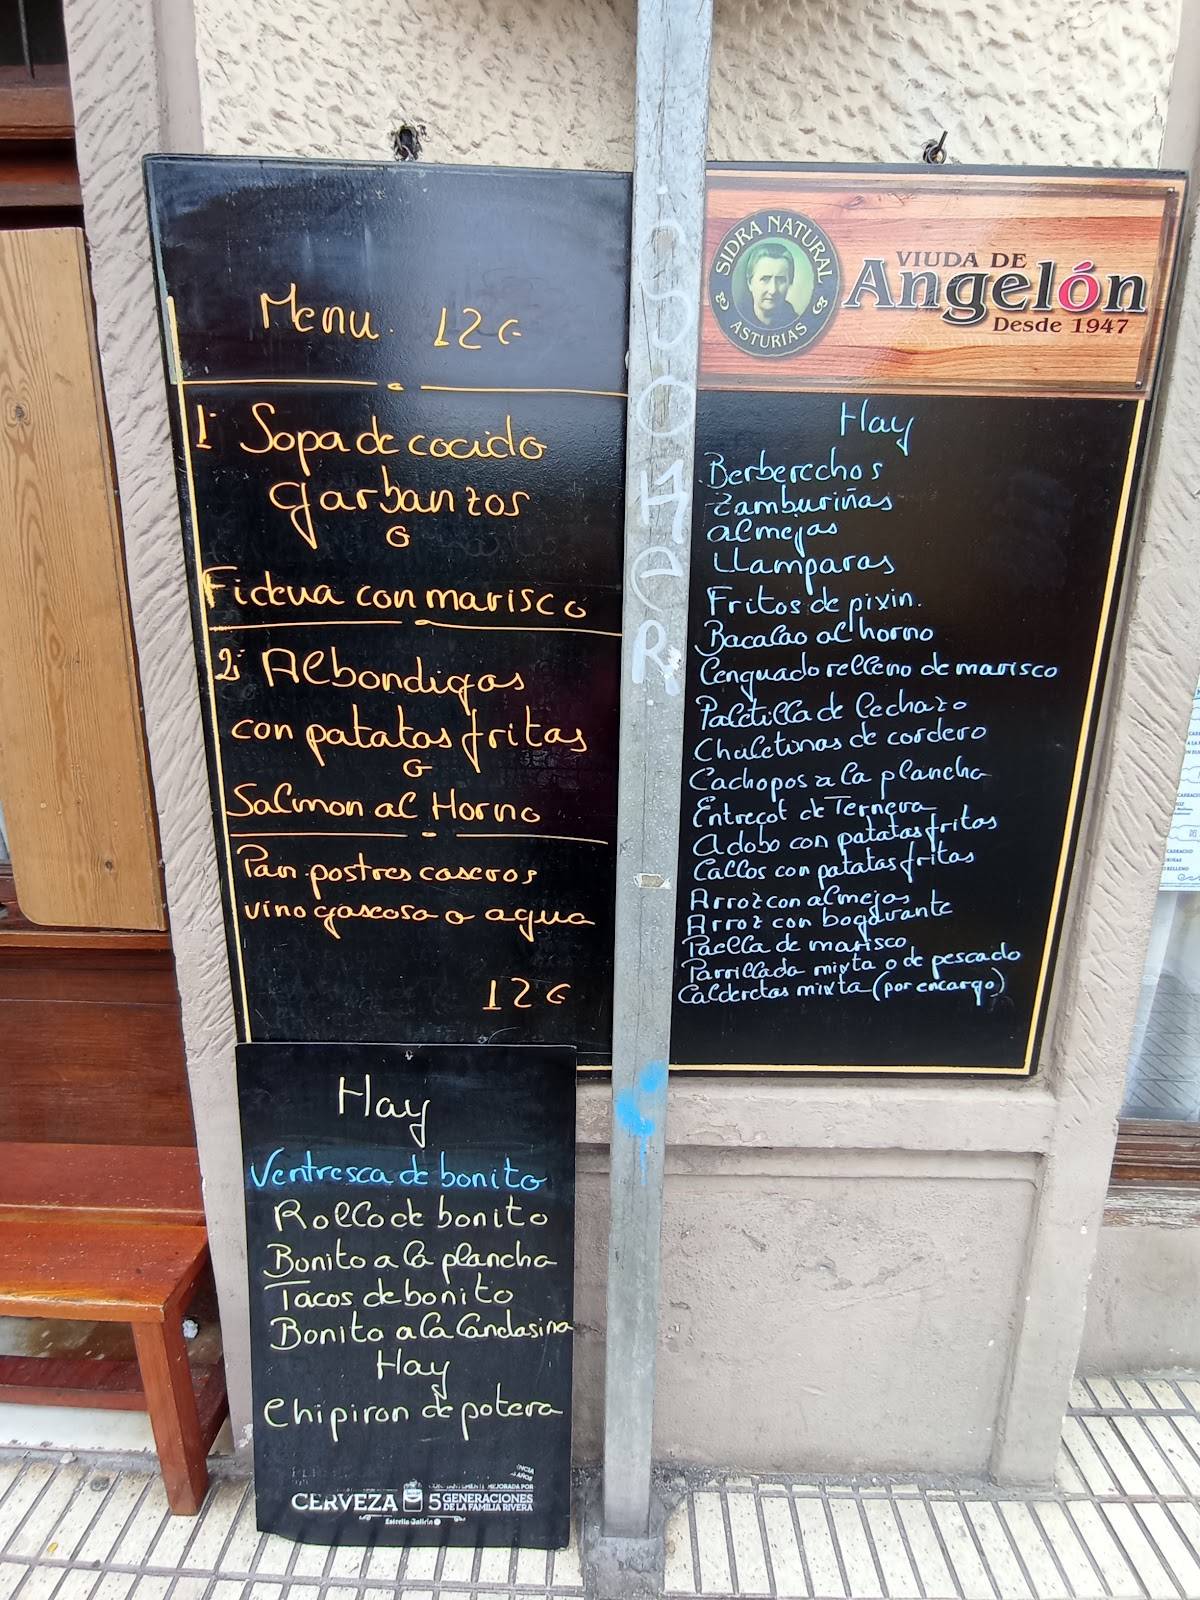 Menu 12€
1º Sopa de cocido
garbanzos
o
Fideua con marisco
2º Albondigas
con patatas fritas
o
Salmon al Horno
Pan postres caseros
vino gaseosa o agua
12€
SIDRA NATURAL
ASTURIAS
VIUDA DE
Angelón
Desde 1947
Hay
Berberechos
Zamburiñas
almejas
LLamparas
Fritos de pixin.
Bacalao al horno
Lenguado relleno de marisco
Paletilla de lechazo
Chuletinas de cordero
Cachopos a la plancha
Entrecot de Ternera
Adobo con patatas fritas
Callos con patatas fritas
Arroz con almejas
Arroz con bogavante
Paella de marisco
Parrillada mixta o de pescado
Calderetas mixta (por encargo)
SOMER
Hay
Ventresca de bonito
Rollo de bonito
Bonito a la plancha
Tacos de bonito
Bonito a la Candasina
Hay
Chipiron de potera
MEJORADA POR
CERVEZA 5 GENERACIONES
DE LA FAMILIA RIVERA
Estrella Galicia